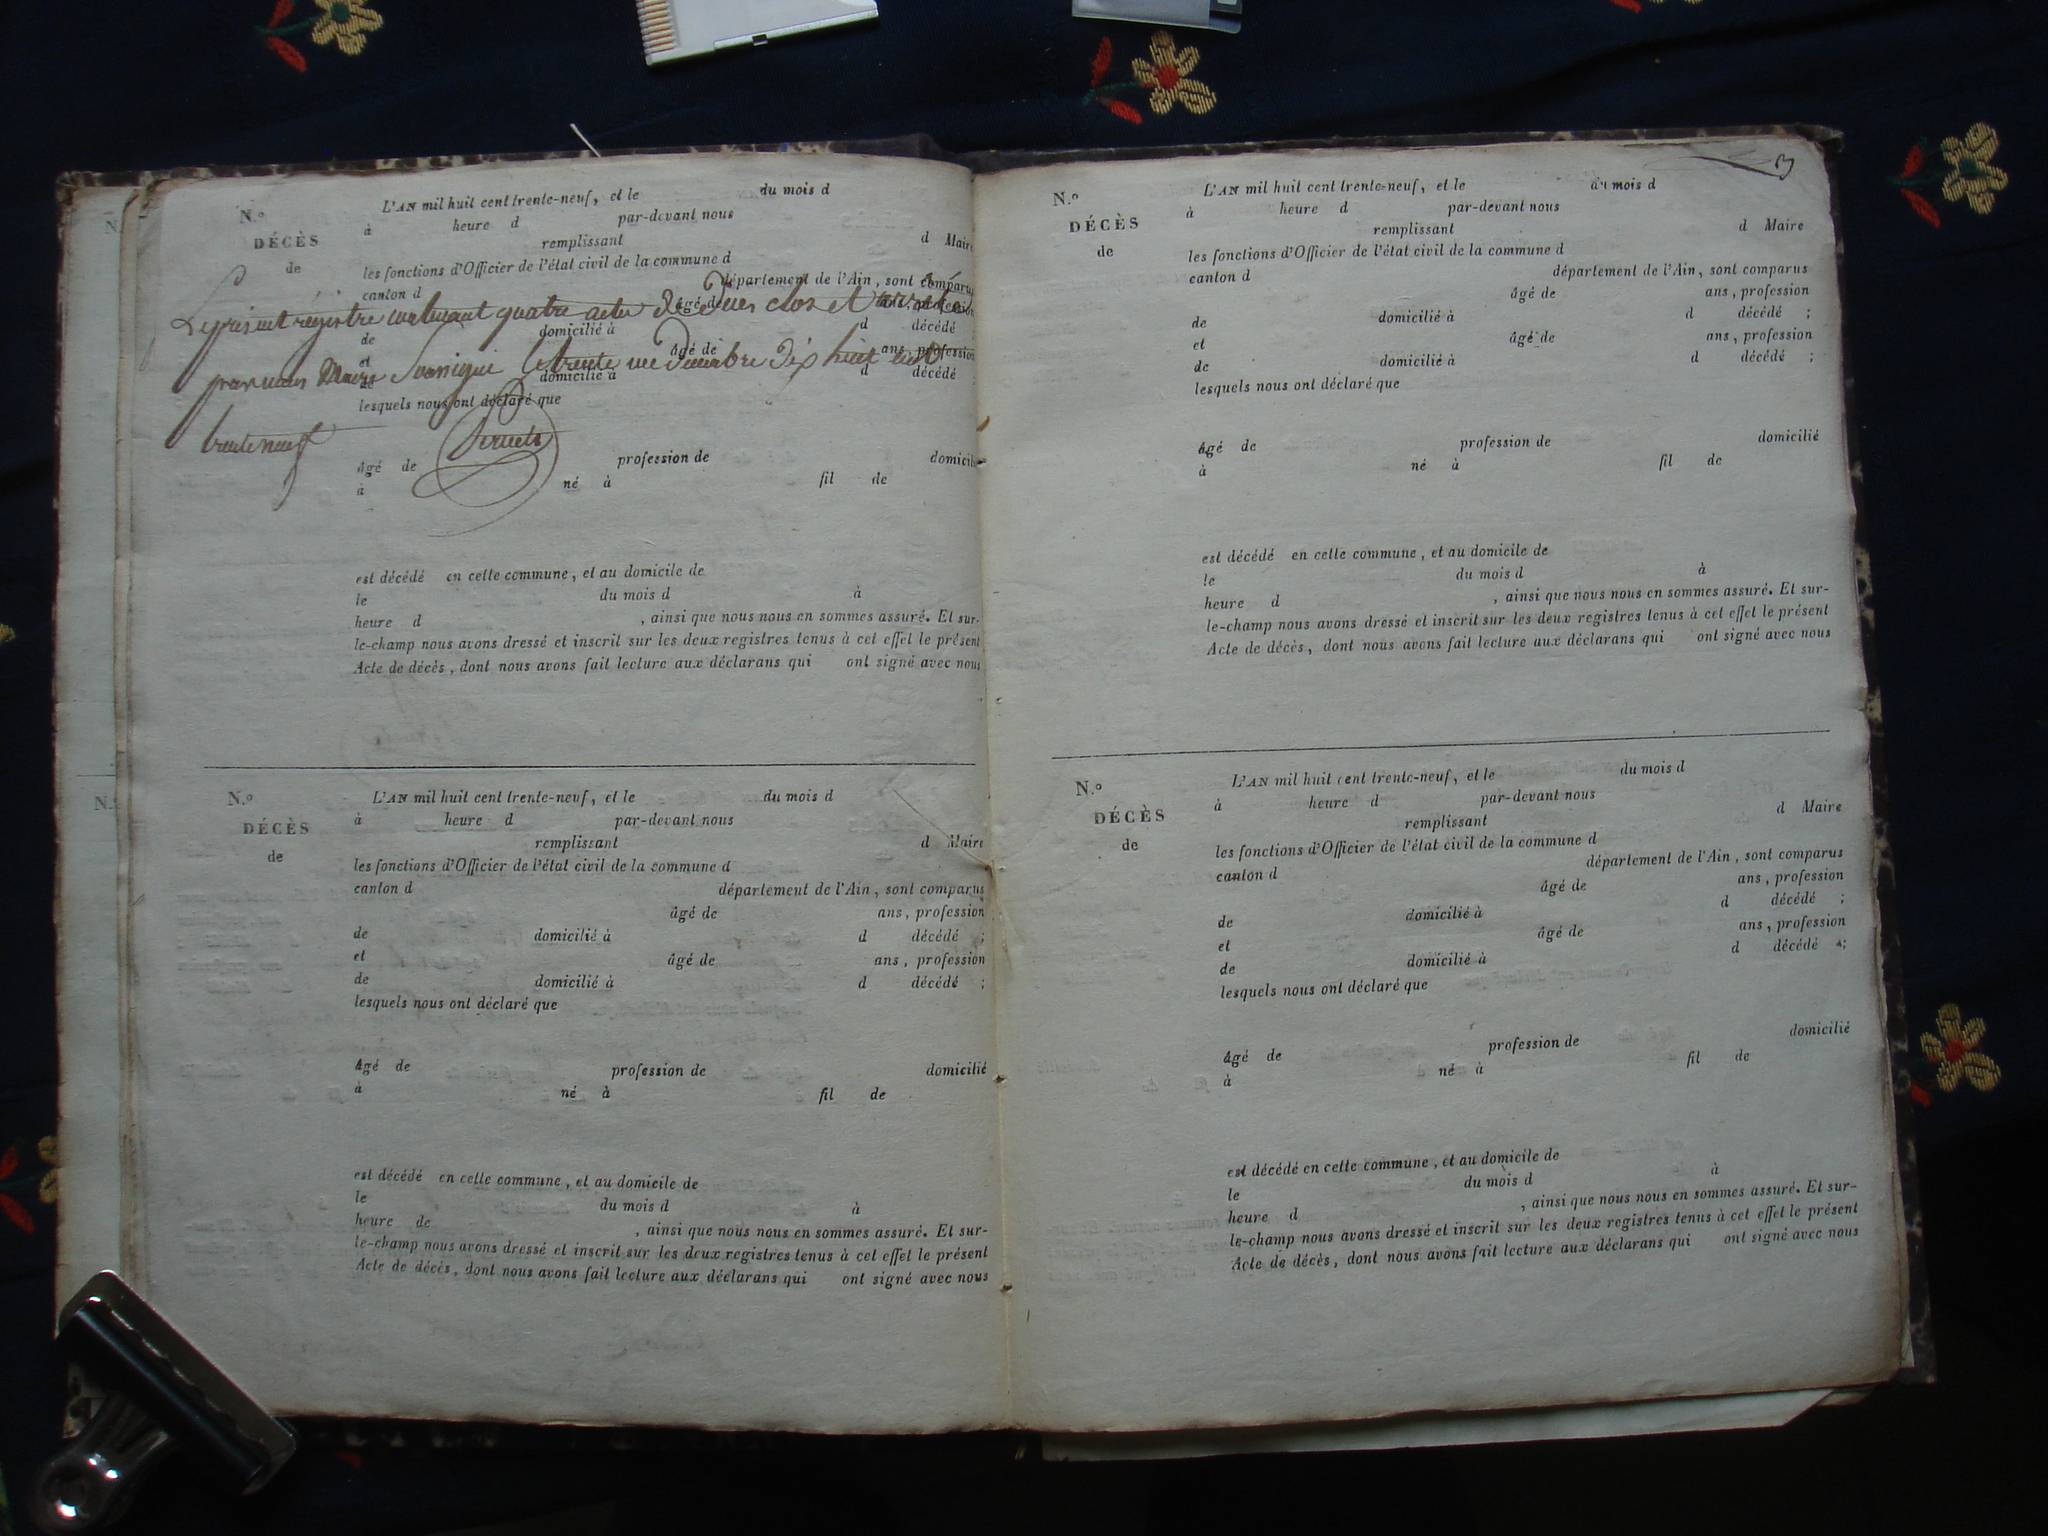 N.º
DÉCÈS
de
L'AN mil huit cent trente-neuf, et le du mois d
à heure d par-devant nous
remplissant d Maire
les fonctions d'Officier de l'état civil de la commune d
canton d département de l'Ain, sont comparus
âgé de ans, profession
de domicilié à d décédé
et âgé de ans, profession
de domicilié à d décédé
lesquels nous ont déclaré que
Le présent régistre contenant quatre actes de décès clos et arrêté
par nous Maire soussigné le trente un Décembre dix huit cent
trente neuf
âgé de profession de domicilié
à né à fil de
est décédé en cette commune, et au domicile de
le du mois d à
heure d , ainsi que nous nous en sommes assuré. Et sur-
le-champ nous avons dressé et inscrit sur les deux registres tenus à cet effet le présent
Acte de décès, dont nous avons fait lecture aux déclarans qui ont signé avec nous
N.º
DÉCÈS
de
L'AN mil huit cent trente-neuf, et le du mois d
à heure d par-devant nous
remplissant d Maire
les fonctions d'Officier de l'état civil de la commune d
canton d département de l'Ain, sont comparus
âgé de ans, profession
de domicilié à d décédé ;
et âgé de ans, profession
de domicilié à d décédé ;
lesquels nous ont déclaré que
âgé de profession de domicilié
à né à fil de
est décédé en cette commune, et au domicile de
le du mois d à
heure de , ainsi que nous nous en sommes assuré. Et sur-
le-champ nous avons dressé et inscrit sur les deux registres tenus à cet effet le présent
Acte de décès, dont nous avons fait lecture aux déclarans qui ont signé avec nous
3
N.º
DÉCÈS
de
L'AN mil huit cent trente-neuf, et le du mois d
à heure d par-devant nous
remplissant d Maire
les fonctions d'Officier de l'état civil de la commune d
canton d département de l'Ain, sont comparus
âgé de ans, profession
de domicilié à d décédé ;
et âgé de ans, profession
de domicilié à d décédé ;
lesquels nous ont déclaré que
âgé de profession de domicilié
à né à fil de
est décédé en cette commune, et au domicile de
le du mois d à
heure d , ainsi que nous nous en sommes assuré. Et sur-
le-champ nous avons dressé et inscrit sur les deux registres tenus à cet effet le présent
Acte de décès, dont nous avons fait lecture aux déclarans qui ont signé avec nous
N.º
DÉCÈS
de
L'AN mil huit cent trente-neuf, et le du mois d
à heure d par-devant nous
remplissant d Maire
les fonctions d'Officier de l'état civil de la commune d
canton d département de l'Ain, sont comparus
âgé de ans, profession
de domicilié à d décédé ;
et âgé de ans, profession
de domicilié à d décédé ;
lesquels nous ont déclaré que
âgé de profession de domicilié
à né à fil de
est décédé en cette commune, et au domicile de
le du mois d à
heure d , ainsi que nous nous en sommes assuré. Et sur-
le-champ nous avons dressé et inscrit sur les deux registres tenus à cet effet le présent
Acte de décès, dont nous avons fait lecture aux déclarans qui ont signé avec nous